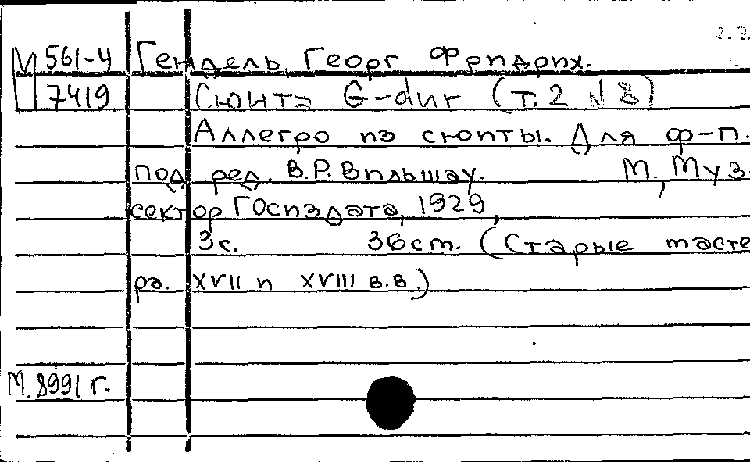 М 561-4 Гендель, Георг Фридрих.
7419 Сюита G-dur (т. 2 № 8)
Аллегро из сюиты. Для ф-п.
под ред. В.Р. Вильшау. М., Муз.
сектор Госиздата, 1929,
3с. 36cm. (Старые масте
ра. XVII и XVIII в.в.)
М. 8991 г.